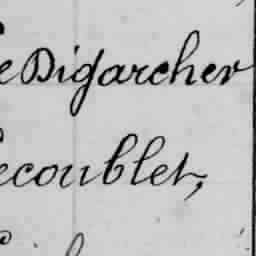 e Digarcher
ecoublet,